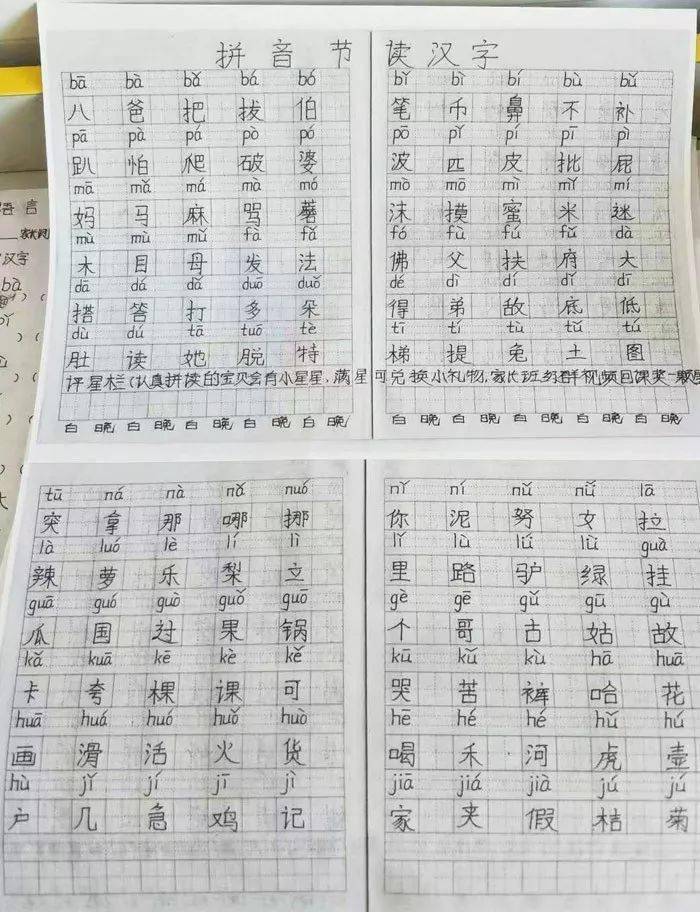 拼音节 读汉字
bā bà bǎ bá bó
八 爸 把 拔 伯
pā pà pá pò pó
趴 怕 爬 破 婆
mā mǎ má mà mó
妈 马 麻 骂 蘑
mù mù mǔ fà fǎ
木 目 母 发 法
dā dá dǎ duō duǒ
搭 答 打 多 朵
dù dú tā tuō tè
肚 读 她 脱 特
bǐ bì bí bù bǔ
笔 币 鼻 不 补
pō pǐ pí pī pì
波 匹 皮 批 屁
mò mō mì mǐ mí
沫 摸 蜜 米 迷
fó fù fú fǔ dà
佛 父 扶 府 大
dé dì dí dǐ dī
得 弟 敌 底 低
tī tí tù tǔ tú
梯 提 兔 土 图
评星栏(认真拼读的宝贝会有小星星,满星可兑换小礼物,家长班级群视频回课奖一颗
白 晚 白 晚 白 晚 白 晚 白 晚 白 晚 白 晚 白 晚 白 晚 白 晚
tū ná nà nǎ nuó
突 拿 那 哪 挪
là luó lè lí lì
辣 萝 乐 梨 立
guā guó guò guǒ guō
瓜 国 过 果 锅
kǎ kuā kē kè kě
卡 夸 棵 课 可
huà huá huó huǒ huò
画 滑 活 火 货
hù jǐ jí jī jì
户 几 急 鸡 记
nǐ ní nǔ nǚ lā
你 泥 努 女 拉
lǐ lù lǘ lǜ guà
里 路 驴 绿 挂
gè gē gǔ gū gù
个 哥 古 姑 故
kū kǔ kù hā huā
哭 苦 裤 哈 花
hē hé hé hǔ hú
喝 禾 河 虎 壶
jiā jiá jià jú jú
家 夹 假 桔 菊
语言
汉字
bà